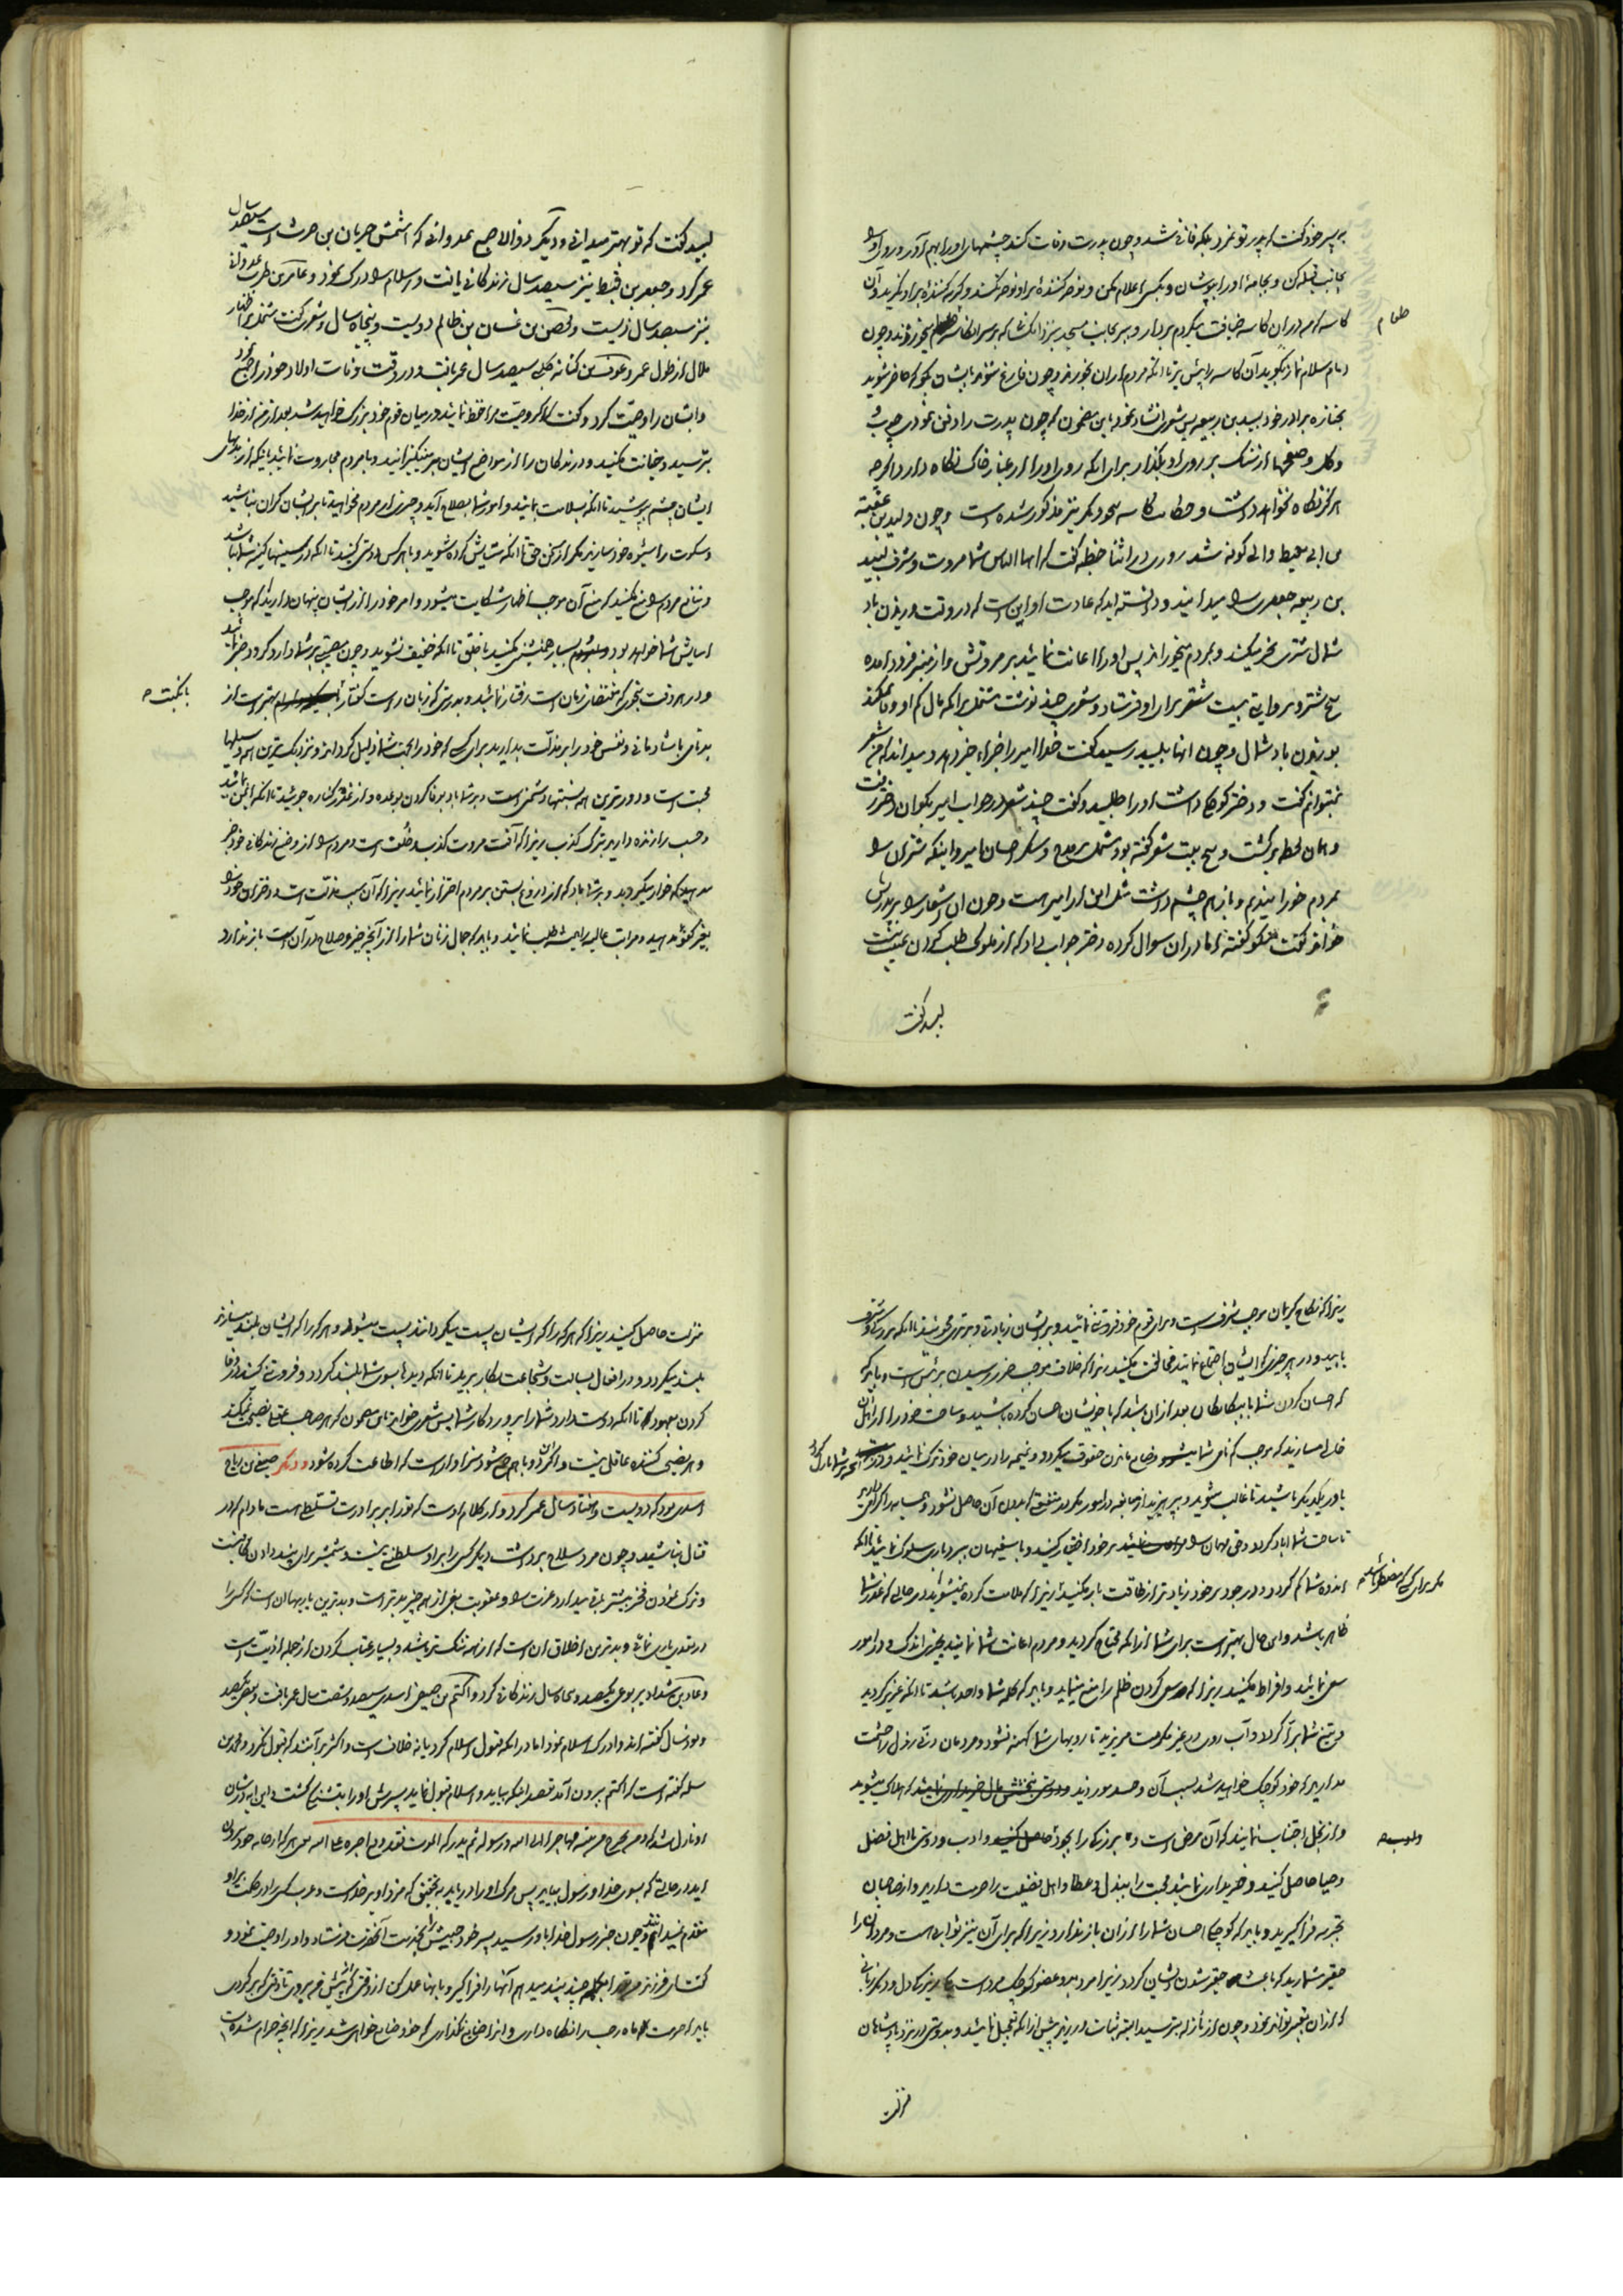 به پسر خود گفت که پدر تو نمرد بلکه فانی شد و چون پدرت وفات کند چشمهای او را بهم آور و روی او را
بجانب قبله کن و بجامهٔ او را بپوشان و بکسی اعلام مکن و نوحه کنندهٔ بر او نوحه نکند و گریه کنندهٔ بر او نگرید و آن
کاسه که من در آن کاسه ضیافت میکردم بردار و ببر بجانب مسجد نزد آنکسانی که بر سر آن کاسه میخوردند و چون
طعام
امام سلام نماز بگوید آن کاسه را پیش بر تا آنکه مردم از آن بخورند و چون فارغ شوند بایشان بگو که حاضر شوید
بجنازه برادر خود لبید بن ربیعه پس شعری انشاد نمود باین مضمون که چون پدرت را دفن نمودی چوب
و گل و صفحها از سنگ بر روی او بگذار برای آنکه روی او را از غبار خاک نگاه دارد اگرچه
هرگز نگاه نخواهد داشت و حکایت کاسه بنحو دیگر نیز مذکور شده است و چون ولید بن عقبة
بن ابی معیط والی کوفه شد روزی در اثنا خطبه گفت که ایها الناس شما مروت و شرف لبید
بن ربیعه جعفری را میدانید و دانسته اید که عادت او این است که در وقت وزیدن باد
شمال شتری نحر میکند و بمردم میخوراند پس او را اعانت نمائید بر مروتش و از منبر فرود آمده
پنج شتر و بروایتی بیست شتر برای او فرستاد و شعری چند نوشت مشتمل بر آنکه مال کم او وفا نمیکند
بوزیدن باد شمال و چون اینها بلبید رسید گفت خدا امیر را جزای خیر دهد و میداند که من شعر
نمیتوانم گفت و دختر کوچکی داشت او را طلبید و گفت چند شعر در جواب امیر بگو آن دختر رفت
و همان لحظه برگشت و پنج بیت شعر گفته بود مشتمل بر مدح و شکر احسان امیر و اینکه شتران را
بمردم خورانیدیم و باز هم چشم داشت مثل این از امیر هست و چون آن اشعار را بر پدرش
خواند گفت نیکو گفتهٔ اما در آن سؤال کرده دختر جواب داد که از ملوک طلب کردن عیب نیست
لبید گفت
لبید گفت که تو بهتر میدانی و دیگر ذو الاصبع عدوانی که اسمش حرثان بن حرث است سیصد سال
عمر کرد و جعفر بن قبط نیز سیصد سال زندگانی یافت و اسلام را درک نمود و عامر بن ظرب عدوانی
نیز سیصد سال زیست و محصن بن غسان بن ظالم دویست و پنجاه سال و شعری گفت مشتمل بر اظهار
ملال از طول عمر و عوف بن کنانه کلبی سیصد سال عمر یافت و در وقت وفات اولاد خود را جمع نمود
و ایشان را وصیت کرد و گفت که اگر وصیت مرا حفظ نمائید در میان قوم خود بزرگ خواهید شد بعد از من از خدا
بترسید و خیانت مکنید و درندگان را از مواضع ایشان بر مینگیزانید و با مردم مجاورت نمائید باینکه از بدیهای
ایشان چشم بپوشید تا آنکه بسلامت بمانید و امور شما بصلاح آید و چیزی از مردم مخواهید تا بر ایشان گران نباشید
و سکوت را شیوه خود سازید مگر از سخن حق تا آنکه ستایش کرده شوید و با هر کس دوستی کنید تا آنکه در سینها کینه شما نباشد
و منافع مردم را منع مکنید که منع آن موجب اظهار شکایت میشود و امر خود را از ایشان پنهان دارید که موجب
آسایش شما خواهد بود و بسیار همنشینی مکنید با خلق تا آنکه خفیف نشوید و چون مصیبتی بر شما وارد گردد صبر نمائید
و در هر وقت بنحوی که مقتضای زمان است رفتار نمائید و بدرستی که زبان راست گفتار بهتر است از
با نکبت
بدنامی با شادمانی و نفس خود را بمذلت بدارید برای کسی که خود را بجهت شما ذلیل گرداند و نزدیکترین وسیلها
محبت است و دورترین نسبتها دشمنی است و بر شما باد بوفا کردن بوعده و از غدر کناره جوئید تا آنکه ایمن باشید
و حسب را زنده دارید بترک کذب زیرا که آفت مروت کذب و خلف است و مردم را از وضع زندگانی خود خبر
مدهید که خوار میگردید و بر شما باد که از دروغ بستن بر مردم احتراز نمائید زیرا که آن سبب مذلت است و دختران خود را
بغیر کفو مدهید و مراتب عالیه را همیشه طلب نمائید و باید که جمال زنان شما را از آنچه خیر و صلاح در آن است باز ندارد
زیرا که نکاح کریمان موجب شرف است و برای قوم خود فروتنی نمائید و بر ایشان زیادتی و برتری مجوئید تا آنکه بزرگی و شرف
یابید و در هر چیزی که ایشان اجتماع نمایند مخالفت مکنید زیرا که خلاف موجب ضرر رسیدن بر رئیس است و باید
که احسان کردن شما با بیگانگان بعد از آن باشد که با خویشان احسان کرده باشید و ساحت خود را از اهل آن
خالی مسازید که موجب گمنامی شما میشود و ضایع ماندن حقوق میگردد و نمیمه را در میان خود ترک نمائید و در آنچه بر شما نازل گردد
یاور یکدیگر باشید تا غالب شوید و بپرهیزید از مبالغه در امور مگر در منفعتی که بدون آن حاصل نشود و همسایه را گرامی دارید
تا ساحت شما آباد گردد و حق مهمان را بر خود اختیار کنید و با سفیهان ببردباری سلوک نمائید تا آنکه
اندوه شما کم گردد و در جود بر خود زیادتر از طاقت بار مکنید زیرا که ملامت کرده نمیشوید در حالی که عذر شما
مگر برای کسی که مضطر باشد
ظاهر باشد و این حال بهتر است برای شما از آنکه محتاج گردید و مردم اعانت شما نمایند بچیز اندک و در امور
سعی نمائید و افراط مکنید زیرا که سعی کردن ظلم را منع مینماید و باید که کلمه شما واحد باشد تا آنکه عزیز گردید
و تیغ شما بران گردد و آب روی در غیر مکرمت مریزید تا رویهای شما کهنه نشود و مردمان دنی رذل را حشمت
مدارید که خود کوچک خواهید شد بسبب آن و حسد مورزید که هلاک میشوید
و از بخل اجتناب نمائید که آن مرض است و بزرگی را بجود و ادب و دوستی با اهل فضل
و ادب
و حیا حاصل کنید و خریداری نمائید محبت را ببذل و عطا و اهل فضیلت را حرمت دارید و از صاحبان
تجربه فرا گیرید و باید که کوچکی احسان شما را از آن باز ندارد زیرا که برای آن نیز ثوابی است و مردان را
حقیر مشمارید که باعث حقیر شدن ایشان گردد زیرا مرد بدو عضو کوچک مرد است یکی دل و دیگر زبانی
که از آن تعبیر تواند نمود و چون از نازلهٔ بترسید البته ثبات ورزید پیش از آنکه تعجیل نمائید و بدوستی در نزد پادشاهان
منزلت
منزلت حاصل کنید زیرا که هر که را که ایشان پست میگردانند پست میشود و هر که را که ایشان بلند سازند
بلند میگردد و در افعال بسالت و شجاعت بکار برید تا آنکه دیدها بسوی شما بلند گردد و فروتنی کنید در وفا
کردن بعهود تا آنکه دوست دارد شما را پروردگار شما پس شعری خواند باین مضمون که هر صاحب عقلی نصیحت نمیکند
و هر نصیحت کننده عاقل نیست و اگر این دو با هم جمع شود سزاوار است که اطاعت کرده شود و دیگر صیفی بن ریاح
اسدی بود که دویست و هفتاد سال عمر کرد و از کلام اوست که تو را بر برادرت تسلط هست مادام که در
قتال نباشید و چون مرد سلاح برداشت دیگر کسی را بر او سلطنتی نیست و شمشیر برای پند دادن کافیست
و ترک نمودن فخر بیشتر باقی میدارد عزت را و عقوبت بغی از هر چیز بدتر است و بدترین یاریها آن است که کسی را
در تعدی یاری نمائی و بدترین اخلاق آن است که از همه تنگ تر باشد و بسیار عتاب کردن از جمله اذیت است
و عباد بن شداد یربوعی یکصد و پنجاه سال زندگانی کرد و اکثم بن صیفی اسدی سیصد و شصت سال عمر یافت و بعضی یکصد
و نود سال گفته اند و ادراک اسلام نمود اما در آنکه قبول اسلام کرد یا نه خلاف است و اکثر بر آنند که قبول نکرد و محمد بن
سلمه گفته است که اکثم بیرون آمد بقصد اینکه بیاید و اسلام قبول نماید پسرش او را بتشنگی کشت و این آیه در شأن
او نازل شد که و من یخرج من بیته مهاجرا الی الله و رسوله ثم یدرکه الموت فقد وقع اجره علی الله یعنی هر که از خانه خود بیرون
آید در حالتی که بسوی خدا و رسول بیاید پس مرگ او را دریابد بتحقیق که مزد او بر خداست و عرب کسی را در حکمت بر او
مقدم نمیدانند و چون خبر رسول خدا باو رسید پسر خود حبیش را بخدمت آنحضرت فرستاد و او را وصیت نمود و
گفت ای فرزند من تو را بکلمه چند پند میدهم آنها را فرا گیر و باینها عمل کن از وقتی که از پیش من میروی تا وقتی که برگردی
باید که حرمت ماه رجب را نگاه داری و آنرا ضایع نگذاری که خود ضایع خواهی شد زیرا که آنچه حرام شده است